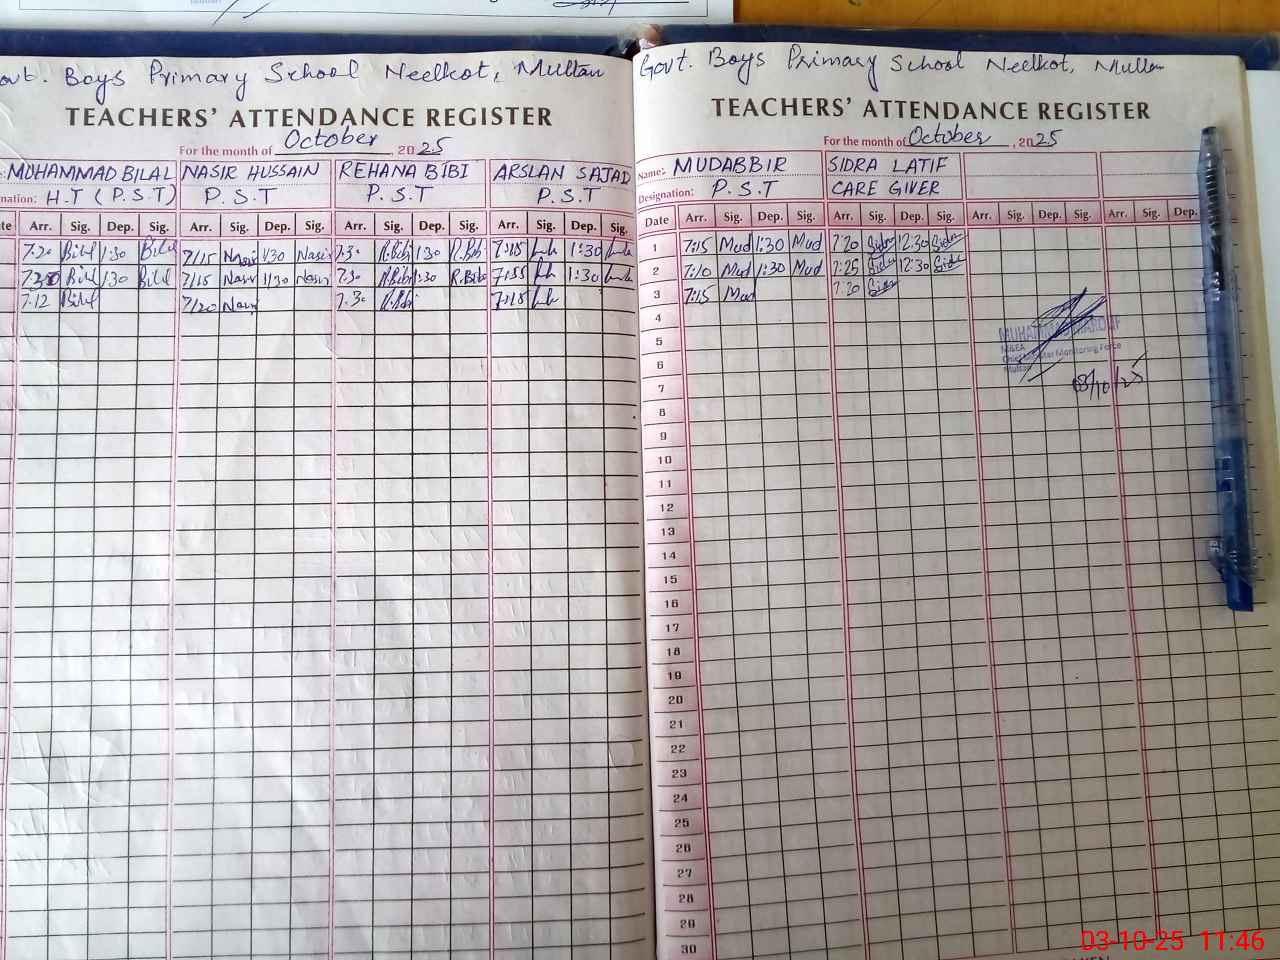 Govt. Boys Primary School Neelkot, Multan
TEACHERS' ATTENDANCE REGISTER
For the month of October, 2025
MUHAMMAD BILAL NASIR HUSSAIN REHANA BIBI ARSLAN SAJAD
H.T (P.S.T) P.S.T P.S.T P.S.T
Arr. Sig. Dep. Sig. Arr. Sig. Dep. Sig. Arr. Sig. Dep. Sig. Arr. Sig. Dep. Sig.
7:20 Bilal 1:30 Bilal 7/15 Nasir 1/30 Nasir 7.30 R.Bibi 1:30 R.Bibi 7:15 1:30
Bilal 1:30 Bilal 7/15 Nasir 1/30 Nasir 7.30 R.Bibi 1:30 R.Bibi 1:30
7:12 Bilal 7/20 Nasir 7.30 R.Bibi 7:15
Govt. Boys Primary School Neelkot, Multan
TEACHERS' ATTENDANCE REGISTER
For the month of October, 2025
Name:- MUDABBIR SIDRA LATIF
Designation: P.S.T CARE GIVER
Date Arr. Sig. Dep. Sig. Arr. Sig. Dep. Sig. Arr. Sig. Dep. Sig. Arr. Sig. Dep.
1 7:15 Mud 1:30 Mud 7:20 Sidra 12:30 Sidra
2 7:10 Mud 1:30 Mud 7:25 Sidra 12:30 Sidra
3 7:15 Mud 7:20 Sidra
4
MUHAMMAD
5
M&EA
Chief Minister Monitoring Force
6
Multan
7
03/10/25
8
9
10
11
12
13
14
15
16
17
18
19
20
21
22
23
24
25
26
27
28
29
30
03-10-25 11:46